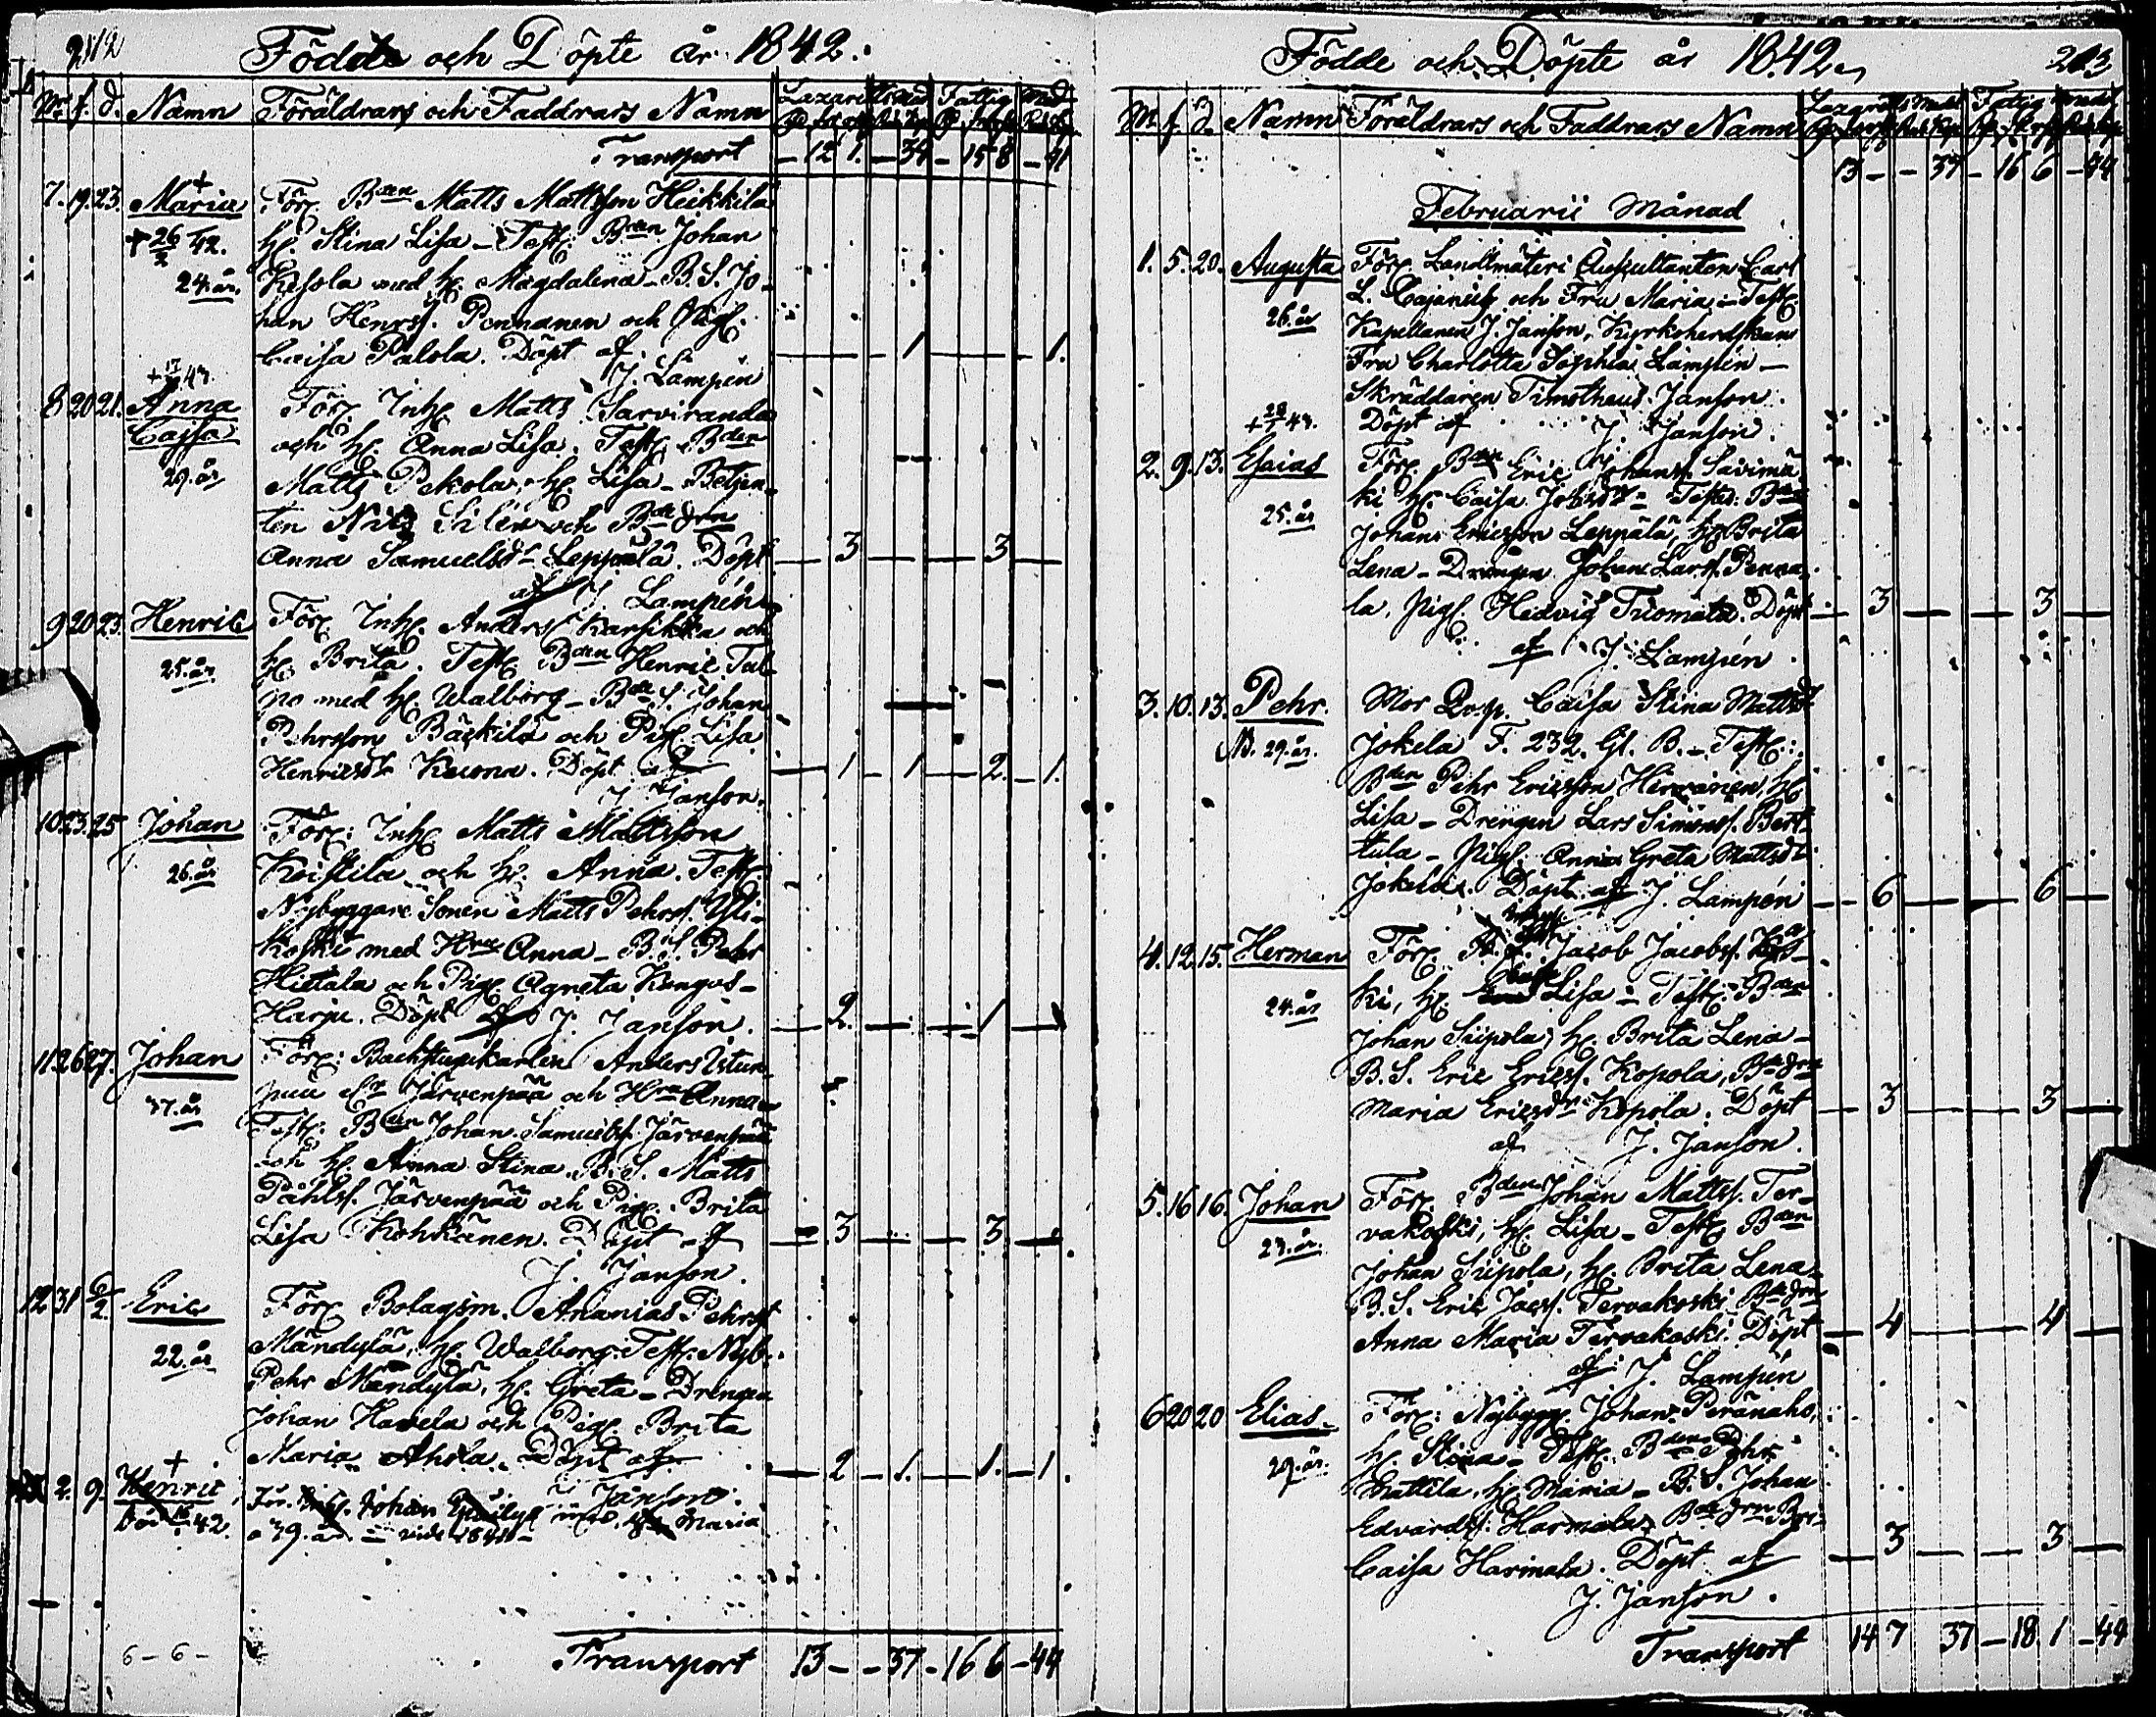 212
Födde och Döpte år 1842.
Nr. f. d. Namn Föräldrars och Faddrars Namn Lazaretts Med. Fattig Med.
Transport - 12 1. - 34 - 15 8 - 41
7. 19. 23. Maria Förc. Bden Matts Mattsson Heikkilä
+ 26/2 42. hc. Stina Lisa - Testc. Bden Johan
24. år. Kesola med hc. Magdalena - B. S. Jo-
han Henrss. Pennanen och Pigc.
Caisa Palola. Döpt af 1 1.
J. Lampén
8 20 21. Anna Förc. Inhc. Matts Sarviranda
Cajsa och hc. Anna Lisa. Testc. Bden
29. år Matts Pekola, hc. Lisa - Betjen-
ten Nils Silén och Bde drn
Anna Samuelsdr Leppälä. Döpt 3 3
af J. Lampén
9 20 23. Henric Förc. Inhc. Anders Karsikka och
25. år hc. Brita. Testc. Bden Henric Tul-
po med hc. Walborg - Bde S. Johan
Pehrsson Bäckilä och Pigc. Lisa
Henricsdr Keuona. Döpt af 1 - 1 2. - 1.
J. Janson.
10 23. 25 Johan Förc: Inhc Matts Mattsson
26. år Koistila och hc. Anna. Testc.
Nybyggare Sonen Matts Pehrss. Yli-
koski med Hru Anna - B. S. Pehr
Hietala och Pigc. Agneta Kangas-
Harju. Döpt af J. Janson. 2. 1
11 26 27. Johan Förc: Backstugukarlen Anders Istun-
37. år puu Järvenpää och Hru Anna
Testc. Bden Johan Samuelss. Järvenpää
och hc. Anna Stina. B. S. Matts
Påhlss. Järvenpää och Pigc. Brita
Lisa Kohkänen. Döpt af 3 3
J. Janson.
12 31 6/2. Eric Förc Bolagsm. Ananias Pehrss
22. år Mändylä, hc. Walborg. Testc. Nyb.
Pehr Mändylä, hc. Greta - Drengen
Johan Havela och Pigc. Brita
Maria Ahola. Döpt af 2 - 1. 1. - 1.
J. Janson.
2. 9. Henric För. Inhc. Johan med Maria
Död 42. a 39. år - vide 1841 -
6 - 6 -
Transport 13 - - 37 - 16 6 - 44
Födde och Döpte år 1842. 213
Nr f. d. Namn Föräldrars och Faddrars Namn Lazaretts Med. Fattig Med.
13 - - 37 - 16 6 - 44
Februarii Månad
1. 5. 20. Augusta Förc. Landtmäteri Auscultanten Carl
L. Cajanus och Fru Maria - Testc.
26. år Kapellanen J. Janson, Kyrkoherdskan
Fru Charlotta Sophia Lampén -
Skräddaren Timotheus Janson.
Döpt af J. Janson.
2. 9. 13. Esaias Förc. Bden Eric Johanss. Savimä
25. år ki hc. Caisa Johsdr - Testc: Bden
Johan Ericsson Leppälä, hc Brita
Lena - Drengen Johan Larss. Penna-
la, Pigc. Hedvig Tuomala. Döpt 3 3
af J. Lampén
3. 10. 13. Pehr. Mor Qvsp. Caisa Stina Mattsdr
NB. 29. år. Jokela F. 232. Gl. B. - Testc:
Bden Pehr Ericsson Hirvänen, hc
Lisa - Drengen Lars Simonss. Bert-
tula - Pigc. Anna Greta Mattsdr
Jokela. Döpt af J. Lampén 6 6
4. 12. 15. Herman Förc. Jacob Jacobss.
24. år ki, hc. Lisa - Testc: Bden
Johan Siipola, hc. Brita Lena -
B. S. Eric Ericss. Kopola, Bde drn
Maria Ericsdr Kopola. Döpt 3 3
af J. Janson.
5. 16 16. Johan Förc. Bden Johan Mattss. Ter-
23. år. vakoski, hc. Lisa - Testc Bden
Johan Siipola, hc. Brita Lena
B. S. Eric Jacss. Tervakoski Bde drn
Anna Maria Tervakoski. Döpt 4 4
af J. Lampén
6 20 20 Elias. Förc: Nybygg. Johan Peränaho,
29. år. hc. Stina - Testc. Bden Pehr
Mattila, hc. Maria - B. S. Johan
Edvardss. Harmala Bde drn Bri-
Caisa Harmala. Döpt af 3 3
J. Janson.
Transport 14 7 37 - 18 1 - 44